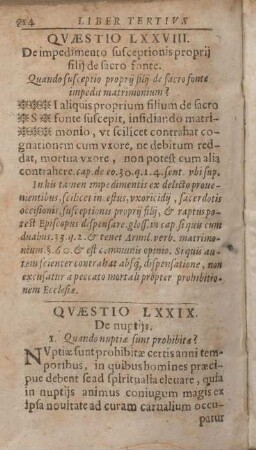 214 LIBER TERTIVS
QVÆSTIO LXXVIII.
De impedimento susceptionis proprij
filij de sacro fonte.
Quando susceptio proprij filij de sacro fonte
impedia matrimonium?
SI aliquis proprium filium de sacro
fonte suscepit, insidiando matri-
monio, vt scilicet contrahat co-
gnationem cum vxore, ne debitum red-
dat, mortua vxore, non potest cum alia
contrahere. cap. de eo. 30. q. 1. 4. sent. vbi sup.
In his tamen impedimentis ex delecto proue-
nientibus, scilicet incestus, vxoricidij, sacerdotis
occisionis, susceptionis proprij filij, & raptus po-
test Episcopus dispensare. gloss. in cap. si quis cum
duabus. 33. q. 2. & tenet Armil. verb. matrimo-
nium. §. 60. & est communis opinio. Si quis au-
tem scienter contrahat absq; dispensatione, non
excusatur a peccato mortali propter prohibitio-
nem Ecclesiæ.
QVÆSTIO LXXIX.
De nuptijs.
1. Quando nuptiæ sunt prohibitæ?
NVptiæ sunt prohibitæ certis anni tem-
poribus, in quibus homines præci-
pue debent se ad spiritualia eleuare, quia
in nuptijs animus coniugum magis ex
ipsa nouitate ad curam carnalium occu-
patur